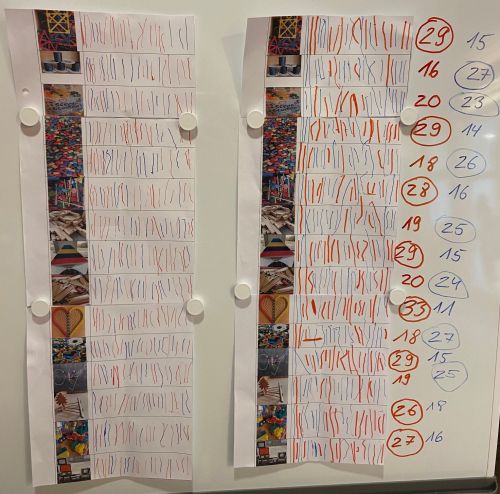 29 15
16 27
20 23
29 14
18 26
28 16
19 25
29 15
20 24
33 11
18 27
29 15
19 25
26 18
27 16